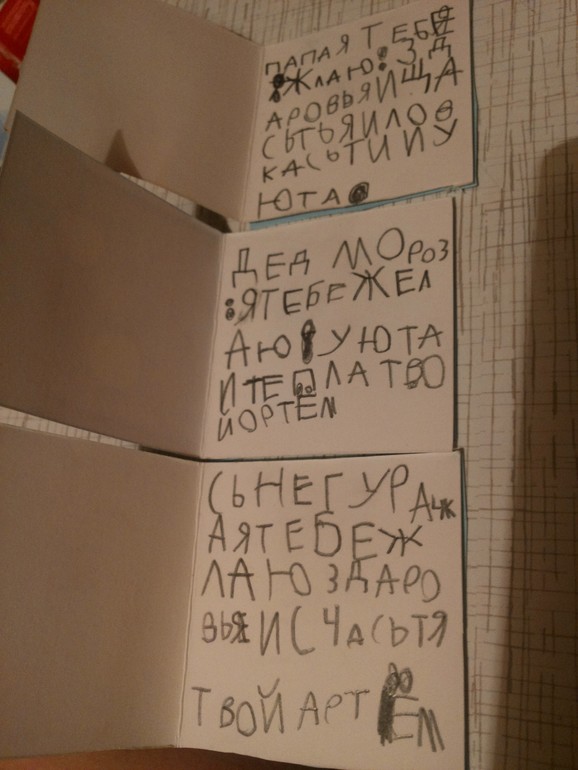 ПАПА Я ТЕБЕ
ЖЛАЮ: ЗД
АРОВЬЯ И ЩА
СЬТЬЯ И ЛОВ
КАСЬТИ И У
ЮТА
ДЕД МОРОЗ
:Я ТЕБЕ ЖЕЛ
АЮ УЮТА
И ТЕПЛА ТВО
Й ОРТЕМ
СЬНЕГУРАЧК
А Я ТЕБЕ Ж
ЛАЮ ЗДАРО
ВЬЯ И СЧАСЬТЯ
ТВОЙ АРТЁМ